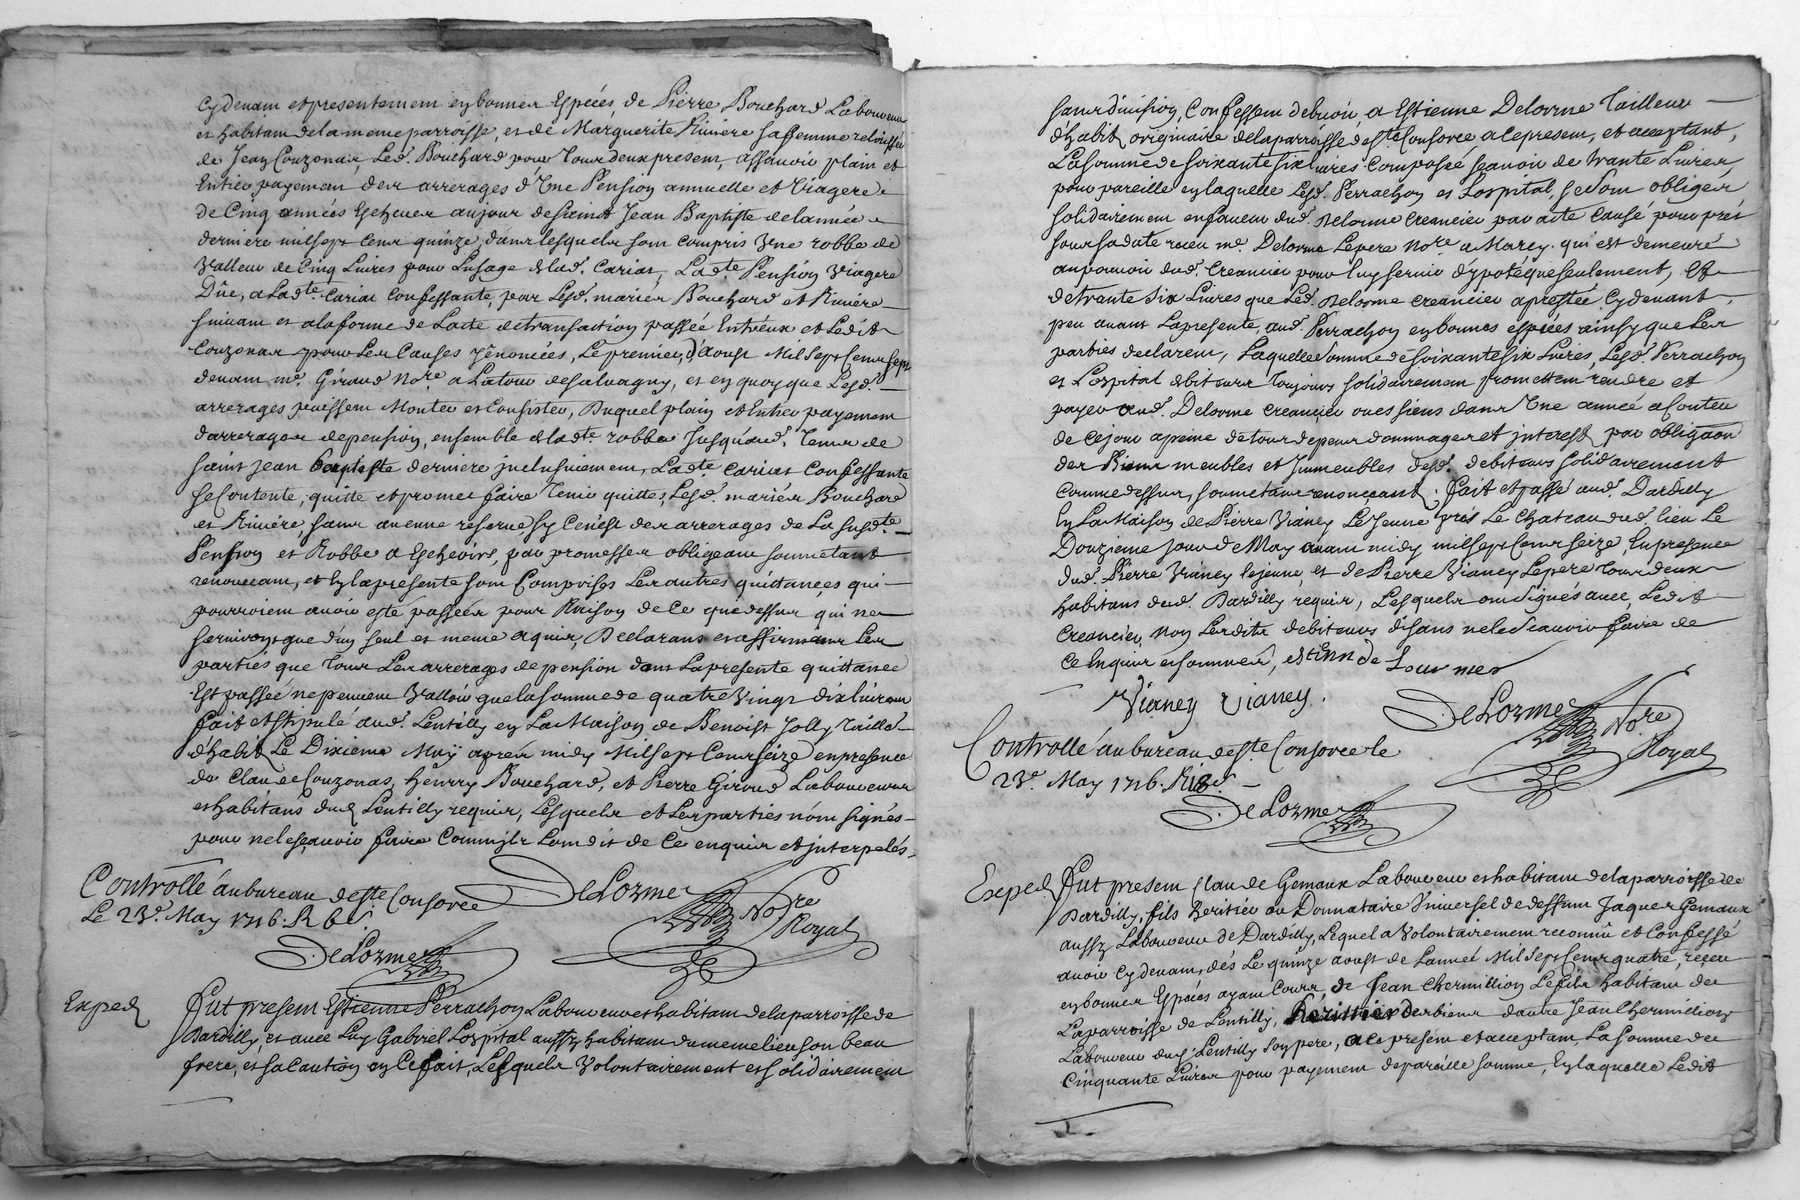 Cydevam et presentement en bonnes Especes de Pierre Bouchard Laboureur
et habitam de la meme parroisse, et de Marguerite Riviere sa femme relaissée
de Jean Couzonas, Led. Bouchard pour tous deux present, assavoir plain et
Entier payemem des arrerages d'Une Pension annuelle et Viagere
de Cinq années Echeues au jour de saint Jean Baptiste de lannée
derniere mil sept Cens quinze, dans lesquels som compris Une robbe de
Valleur de Cinq Livres pour Lusage de lad. Carias, Ladte Pension Viagere
Düe, a Ladte Carias Confessante, par Lesd. mariés Bouchard et Riviere
suivam et a la forme de Lacte de transaction passée Entréux et Ledit
Couzonas pour Les Causes y énoncées, Le premier d'aoust Mil Sept Cens sept
devam me. Giraud Nore a Latour de salvagny, et en quoy que Lesd.
arrerages puissem Monter et Consister, Duquel plain et Entier payemem
darrerages de pension, ensemble de ladte robbe Jusqu'aud. Jour de
saint Jean Baptiste derniere inclusivemem, Ladte Carias Confessante
se Contente, quitte et promet faire tenir quittes, Lesd. mariés Bouchard
et Riviere sans aucune reserve sy Ce n'est des arrerages de La susdte
Pension et Robbe a Echevoir, par promesses obligeam soumetant
renonceam, et En la presente som Comprises Les autres quittances qui
pourroiem avoir esté passées pour Raison de Ce que dessus qui ne
serviront que d'un seul et meme aquis, Declarans et affirmans Les
parties que tous Les arrerages de pension dont La presente quittance
Est passée ne peuvem Valloir que la somme de quatre Vingt dix livres
fait et stipulé aud. Lentilly en La Maison de Benoist Jolly Taille
d'habit Le Dixieme May apres midy Mil sept Cens seize en presence
de Claude Couzonas, Henry Bouchard, et Pierre Giroud Laboureurs
et habitans dud Lentilly requis, Lesquels et Les parties n'ont signés
pour ne le sçavoir faire Comm'ils Lom dit de Ce enquis et interpelés
Controllé au bureau de Ste Consorce
Le 23e May 1716. R 6s.
DeLorme Nore Royal
DeLorme
Exped
Fut presem Estienne Perrachon Laboureur et habitam de la parroisse de
Dardilly, et avec Luy Gabriel Lospital aussy habitam du meme lieu son beau
frere, et sa Caution en Ce fait, Lesquels Volontairement et solidairement
sans division, Confessem debvoir a Estienne Delorme Tailleur
d'habit, originaire de la parroisse de Ste Consorce a ce presem, et acceptant,
La somme de soixante six livres Composée sçavoir de trante Livres
pour pareille en laquelle Lesd. Perrachon et Lospital se som obligés
solidairemem en faveur dud. Delorme Creancier par acte Causé pour prét
sous sa date receu me. Delorme Le pere Nore a Marcy. qui est demeuré
au pouvoir dud. Creancier pour luy servir d'ypotéque seulement, Et
de trante six Livres que Led. Delorme Creancier a prestée Cydevant,
peu avant La presente, aud. Perrachon en bonnes espéces ainsy que Les
parties declarem, Laquelle somme de soixante six Livres, Lesd. Perrachon
et Lospital debiteurs toujours solidairemem promettem rendre et
payer aud. Delorme Creancier ou es siens dans Une année a Conter
de Ce jour a peine de tous depens dommages et interest par obligaon
des Biens meubles et Immeubles desd. debiteurs solidairement
Comme dessus, soumetans renonçant. fait et passé aud. Dardilly
En La Maison de Pierre Vianey Le Jeune prés Le Chateau dud. lieu Le
Douzieme jour de May avant midy mil sept Cens seize, En presence
dud. Pierre Vianey le jeune, et de Pierre Vianey Le pere tous deux
habitans dud. Dardilly requis, Lesquels om signés avec Ledit
Creancier, Non Lesdits debiteurs disans ne le sçavoir faire de
Ce Enquis et sommés, estienne de Lourmes
Vianey Vianey.
DeLorme Nore Royal
Controllé au bureau de Ste Consorce le
23e. May 1716. R 18s.
DeLorme
Exped
Fut presem Claude Gemaux Laboureur et habitam de la parroisse de
Dardilly, fils heritier ou Donnataire Universel de deffum Jaques Gemaux
aussy Laboureur de Dardilly, Lequel a Volontairemem reconnû et Confessé
avoir Cydevam, dés Le quinze aoust de Lannée Mil sept Cens quatre, receu
en bonnes Espéces ayam Cours, de Jean Chermillion Le fils habitam de
La parroisse de Lentilly, Heritier des biens dautre Jean Chermillion
Laboureur dud. Lentilly son pere, a ce presem et acceptam La somme de
Cinquante Livres pour payement de pareille somme, En laquelle Ledit